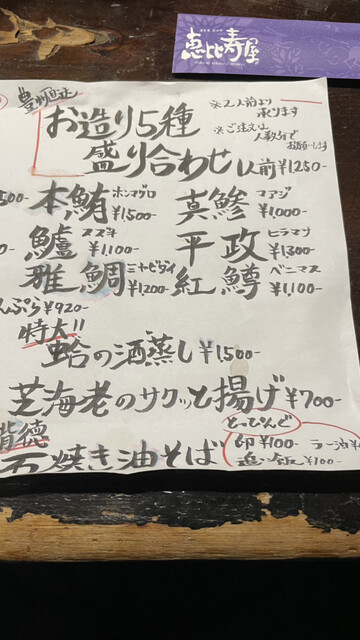 恵比寿屋
豊洲直送
お造り5種
盛り合わせ 1人前¥1250-
※2人前より
承ります
※ご注文は
人数分で
お願いします
500-
本鮪 ホンマグロ ¥1,500
真鯵 マアジ ¥1,000-
鱸 スズキ ¥1,100-
平政 ヒラマサ ¥1,300-
雅鯛 ミヤビダイ ¥1,200
紅鱒 ベニマス ¥1,100-
んぷら ¥920-
特大!!
蛤の酒蒸し ¥1,500-
芝海老のサクッと揚げ ¥700-
背徳
石焼き油そば
とっぴんぐ
卵 ¥100- ラー油
追い飯 ¥100-